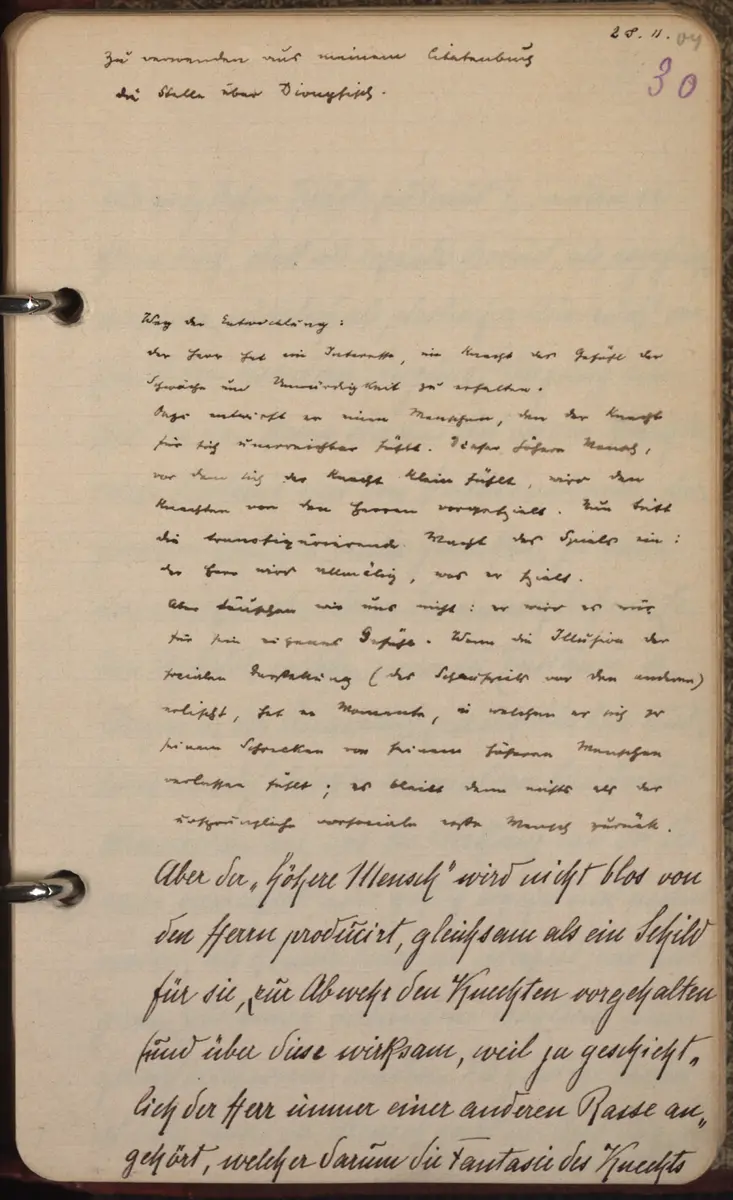 28. 11. 04
30
Zu verwenden aus meinem Citatenbuch
die Stelle über Dionysisch.
Weg der Entwicklung:
der Herr hat ein Interesse, im Knecht das Gefühl der
Schwäche und Unwürdigkeit zu erhalten.
Dazu entwirft er einen Menschen, den der Knecht
für sich unerreichbar fühlt. Dieser höhere Mensch,
vor dem sich der Knecht klein fühlt, wird den
Knechten von den Herren vorgespielt. Nun tritt
die transfigurierende Macht des Spiels ein:
der Herr wird allmälig, was er spielt.
Aber täuschen wir uns nicht: er wird es nur
für sein eigenes Gefühl. Wenn die Illusion der
socialen Darstellung (des Schauspiels vor den anderen)
erlischt, hat er Momente, in welchen er sich zu
seinem Schrecken von seinem höheren Menschen
verlassen fühlt; es bleibt dann nichts als der
ursprüngliche vorsociale erste Mensch zurück.
Aber der „höhere Mensch" wird nicht blos von
den Herrn producirt, gleichsam als ein Schild
für sie, zur Abwehr den Knechten vorgehalten
(und über diese wirksam, weil ja geschicht„
lich der Herr immer einer anderen Rasse an„
gehört, welcher darum die Fantasie des Knechts